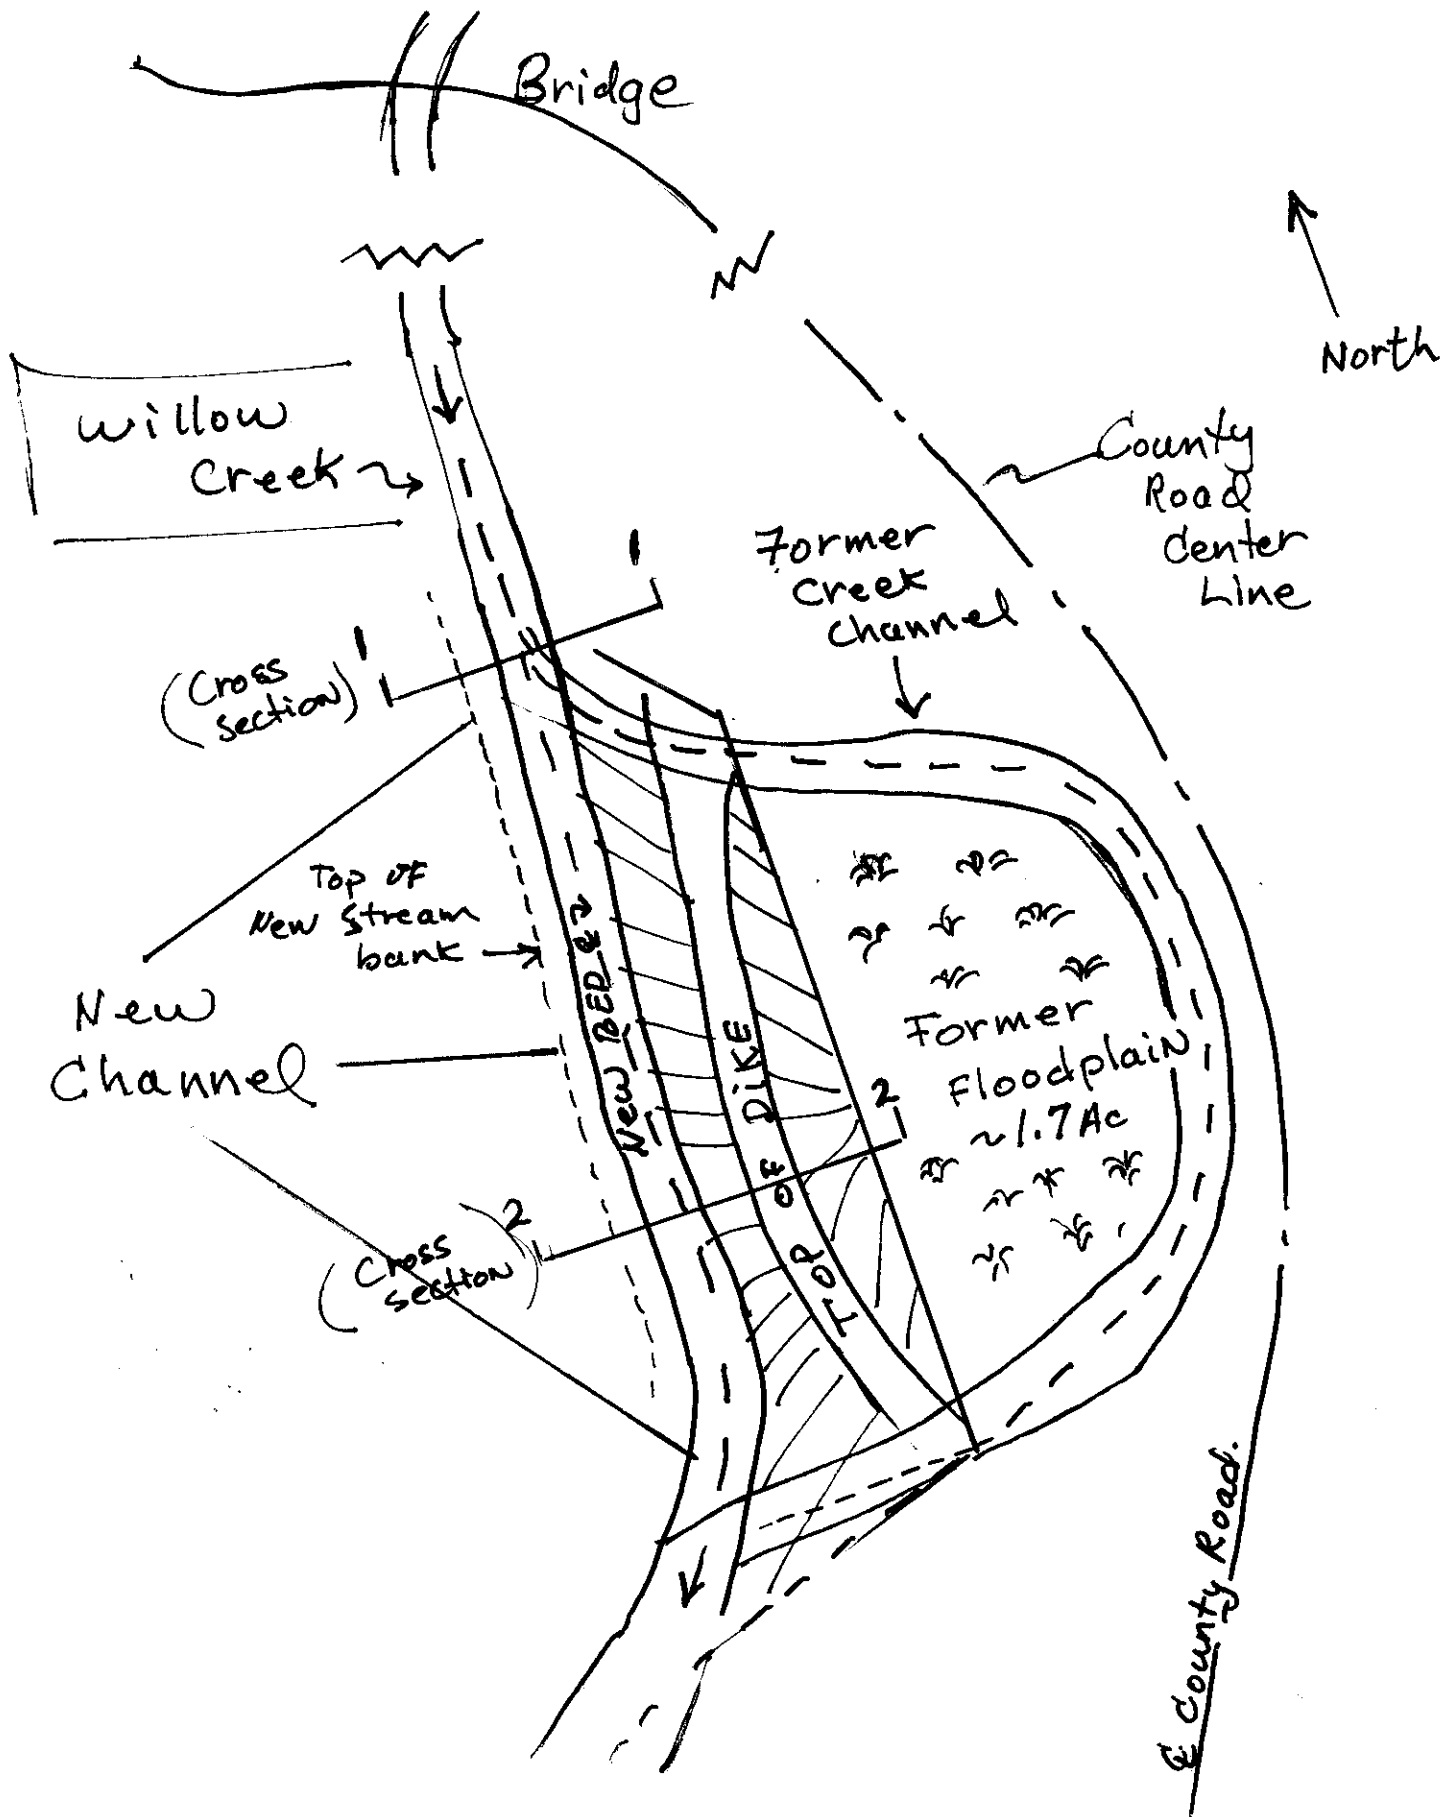 Bridge
North
Willow
Creek
County
Road
Center
Line
Former
Creek
Channel
1
1
(Cross
section)
Top of
New Stream
bank
New
Channel
New BED ℄
TOP OF DIKE
Former
Floodplain
~1.7 Ac
2
2
(Cross
section)
℄ County Road.